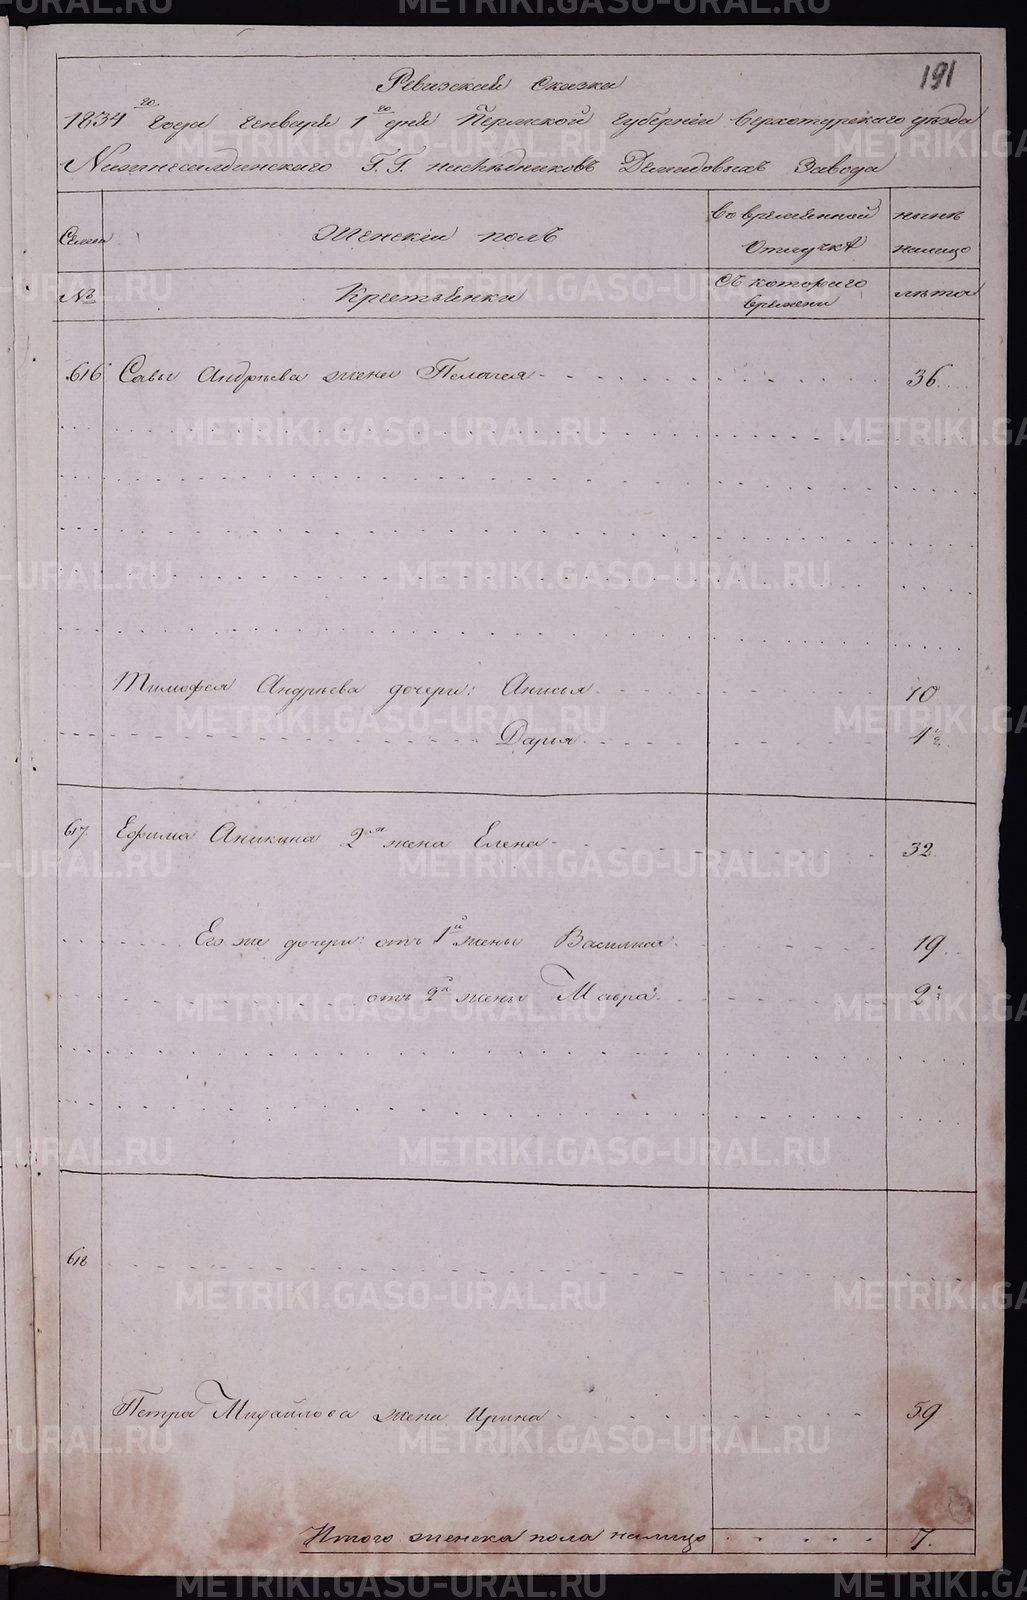 191
Ревизская Сказка
1834го года Генваря 1го дня Пермской Губернии Верхотурскаго уѣзда
Нижнесалдинскаго Г.Г. наслѣдниковъ Демидовыхъ Завода
Семья Женскій полъ во временной отлучкѣ нынѣ налицо
№ Крестьянки съ котораго времени лѣта
616 Савы Андрѣева жена Пелагея 36
Тимофея Андрѣева дочери: Анисья 10
Дарья
617. Ефима Аникина 2я жена Елена 32.
Его же дочери: отъ 1й жены Василиса 19
отъ 2й жены Мавра
618
Петра Михайлова жена Ирина 59
Итого женска пола налицо 7.
METRIKI.GASO-URAL.RU